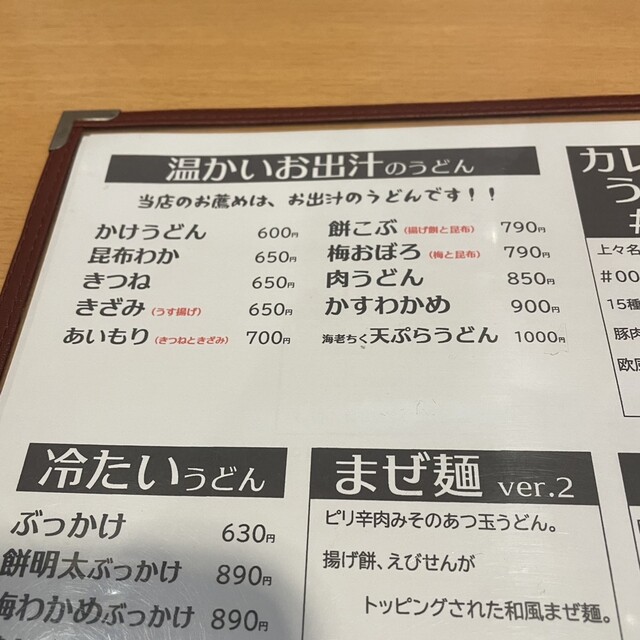 温かいお出汁のうどん
当店のお薦めは、お出汁のうどんです！！
かけうどん 600円
昆布わか 650円
きつね 650円
きざみ(うす揚げ) 650円
あいもり(きつねときざみ) 700円
餅こぶ(揚げ餅と昆布) 790円
梅おぼろ(梅と昆布) 790円
肉うどん 850円
かすわかめ 900円
海老ちく天ぷらうどん 1000円
カレ
う
#
上々名
#00
15種
豚肉
欧風
冷たいうどん
ぶっかけ 630円
餅明太ぶっかけ 890円
梅わかめぶっかけ 890円
まぜ麺 ver.2
ピリ辛肉みそのあつ玉うどん。
揚げ餅、えびせんが
トッピングされた和風まぜ麺。